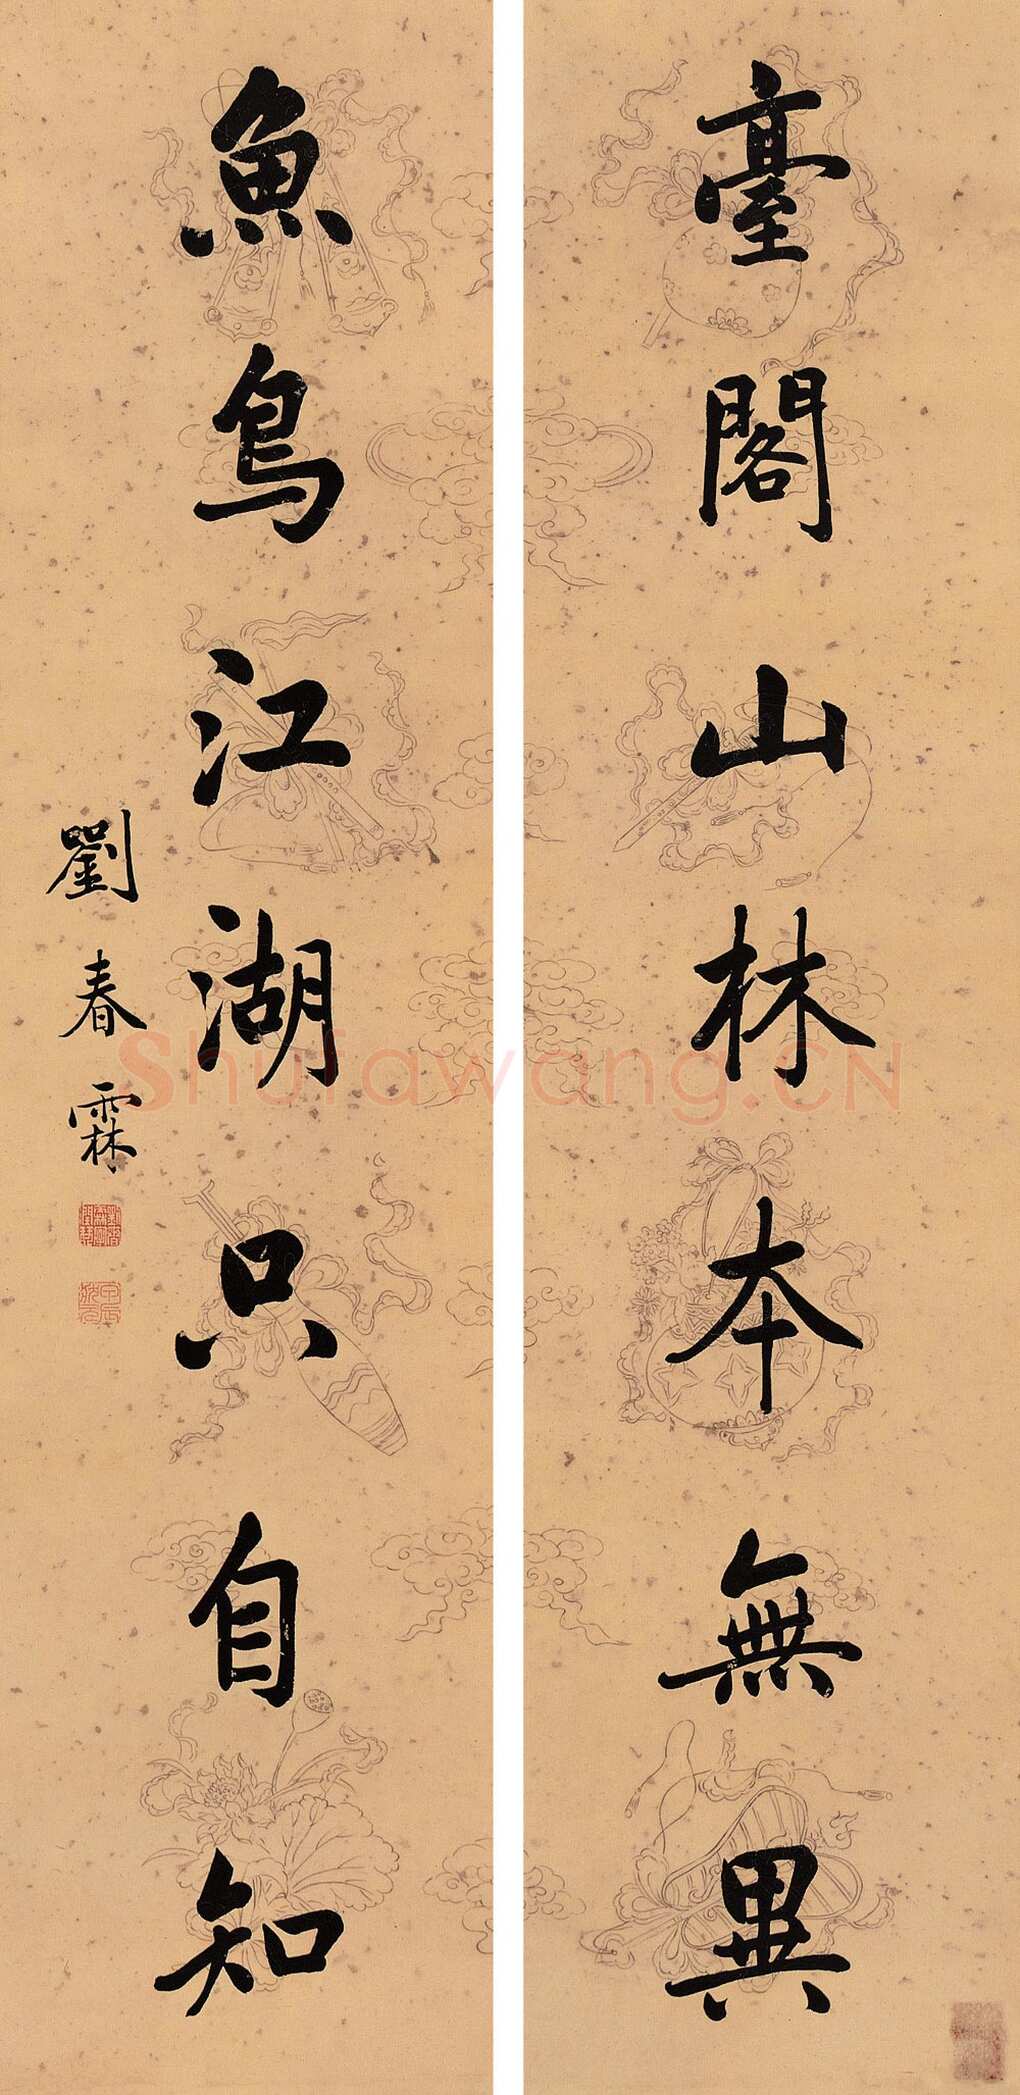 臺閣山林本無異
魚鳥江湖只自知
劉春霖
Shufawang.CN